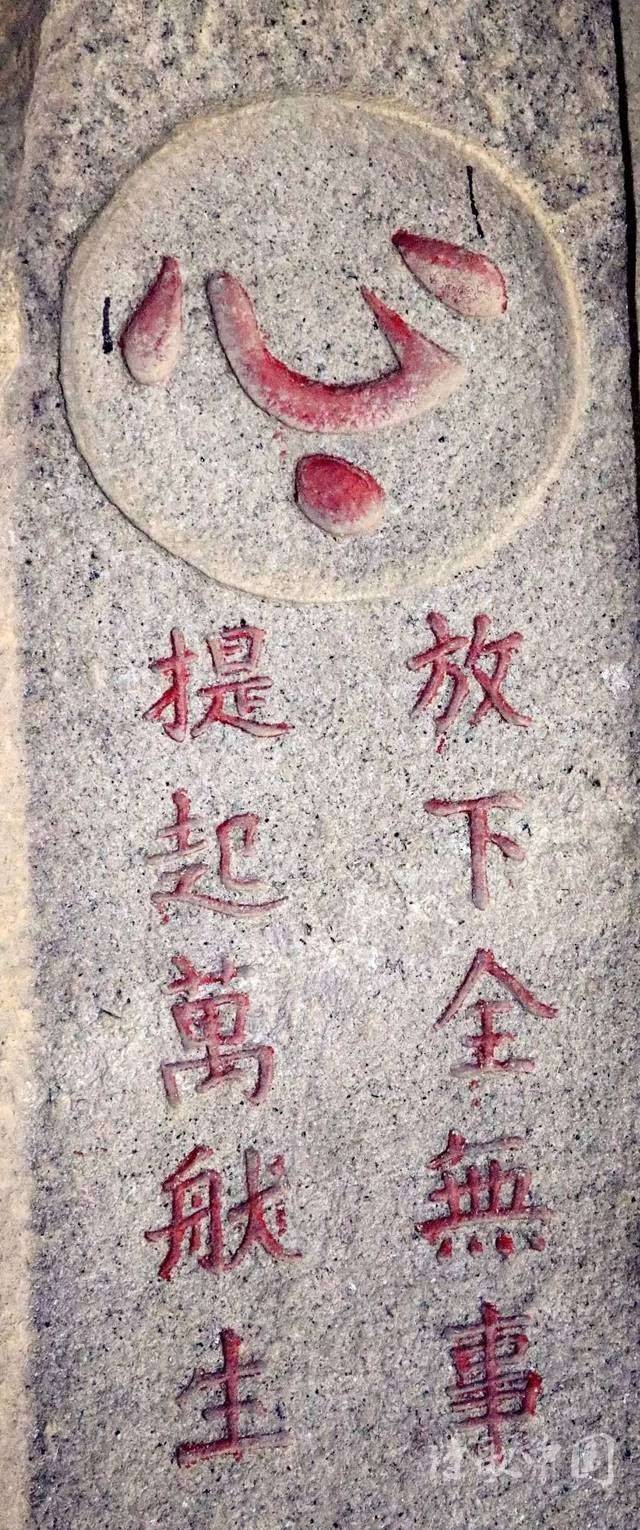 心
放下全無事
提起萬般生
中国